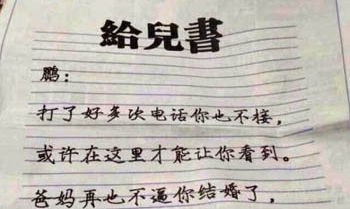 給兒書
鹏：
打了好多次电话你也不接，
或许在这里才能让你看到。
爸妈再也不逼你结婚了，